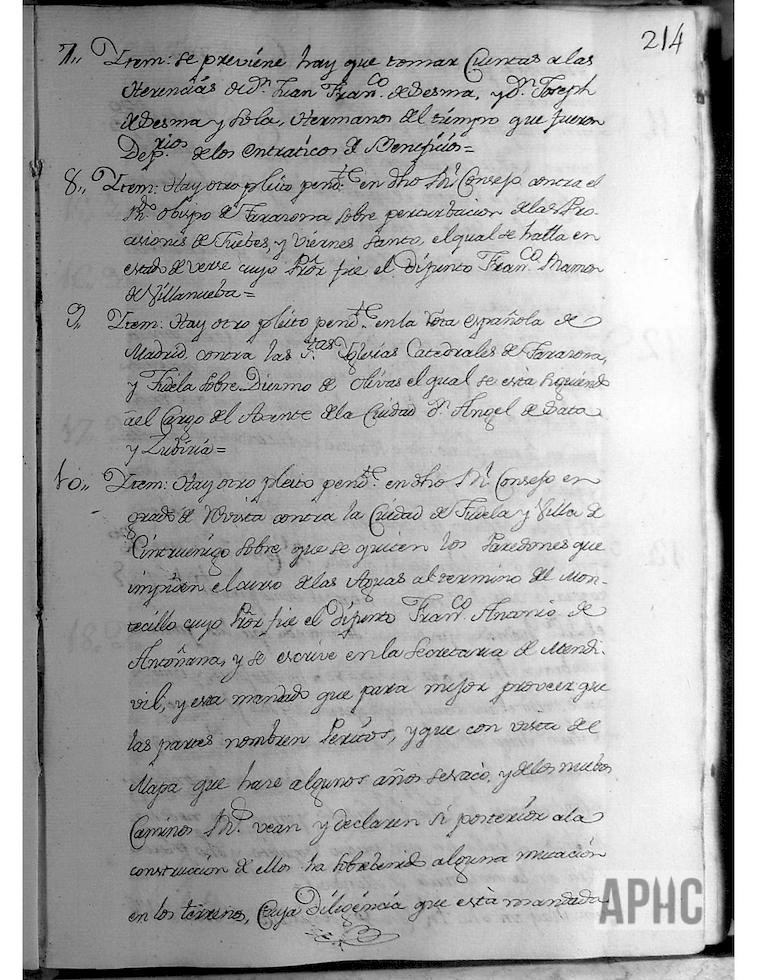 214
7,, Ytem: se previene hay que tomar Cuentas a las
Herencias de Dn. Juan Franco. de Sesma, y Dn. Joseph
de Sesma y Sola, Hermanos del tiempo que fueron
Deprios. de los entraticos de Beneficios=
8,, Ytem: Hay otro pleito pendte. en dho Rl Consejo contra el
Rdo. obispo de Tarazona sobre perturbacion de las Pro-
cesiones de Juebes, y Viernes Santo, el qual se halla en
estado de verse cuyo Pror fue el difunto Franco. Ramon
de Villanueba=
9,, Ytem: Hay otro pleito pendte. en la Rota española de
Madrid, contra las Stas Yglesias Catedrales de Tarazona,
y Tudela sobre Diezmo de olivas el qual se està siguiendo
à el Cargo del Axente de la Ciudad Dn. Angel de Zata
y Zubiria=
10,, Ytem: Hay otro pleito pendte. en dho Rl Consejo en
grado de Revista contra la Ciudad de Tudela y Villa de
Cintruenigo sobre que se quiten los Paredones que
impiden el curso de las Aguas al termino de Mon-
tecillo cuyo Pror fue el difunto Franco. Antonio de
Antoñana, y se escrive en la Secretaria de Mendi-
vil, y esta mandado que para mejor proveer que
las partes nombren Peritos, y que con vista del
Mapa que hace algunos años se sacò, y de los nuebos
Caminos Rs. vean y declaren si posterior a la
construccion de ellos ha sobrebenido alguna mutación
en los terrenos, Cuya Diligencia que està mandada
APHC